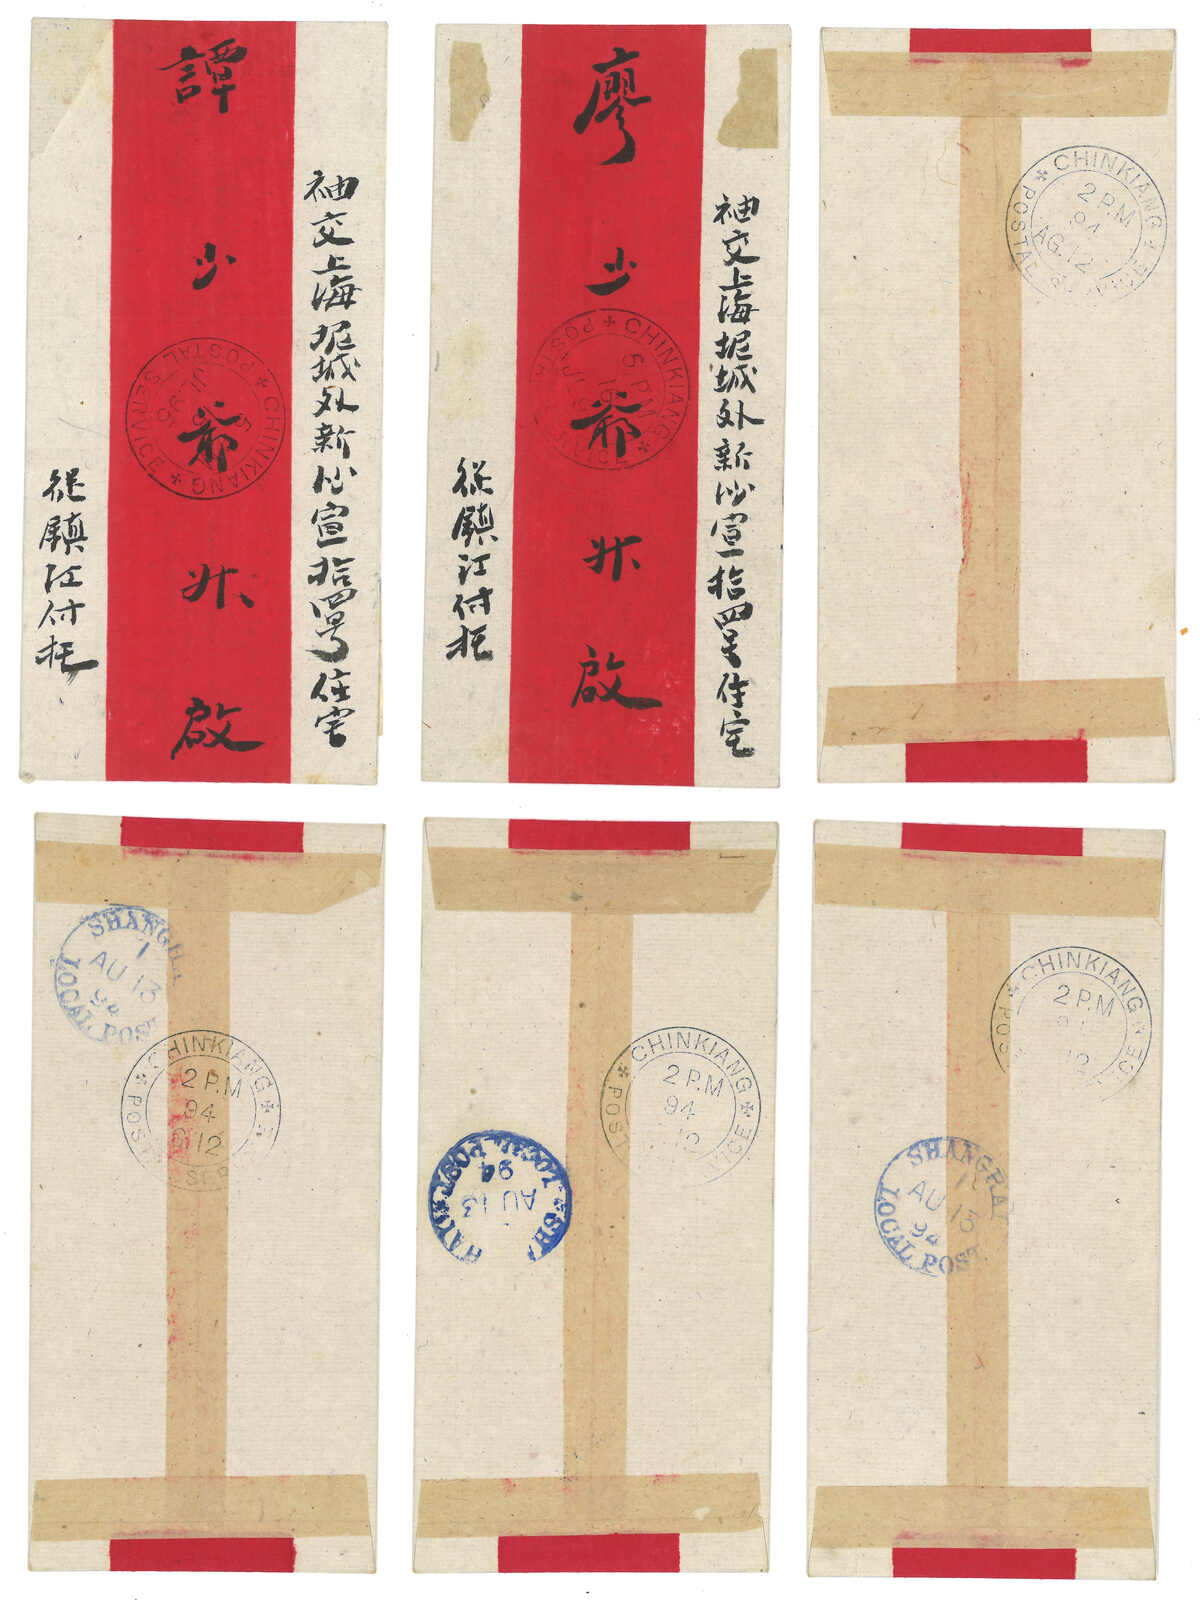 譚少爺升啟
袖交上海坭城外新沙宣拾四号住宅
從鎮江付托
CHINKIANG POSTAL SERVICE
5
JL 95
廖少爺升啟
袖交上海坭城外新沙宣拾四号住宅
從鎮江付托
5 PM
16
CHINKIANG
POSTAL
2 P.M
94
AG.12
SHANGHAI LOCAL POST
1
AU 13
94
CHINKIANG
2 P.M
94
12
LOCAL POST
94
AU 13
CHINKIANG
2 P.M
94
CHINKIANG
2 P.M
12
SHANGHAI LOCAL POST
AU 13
94